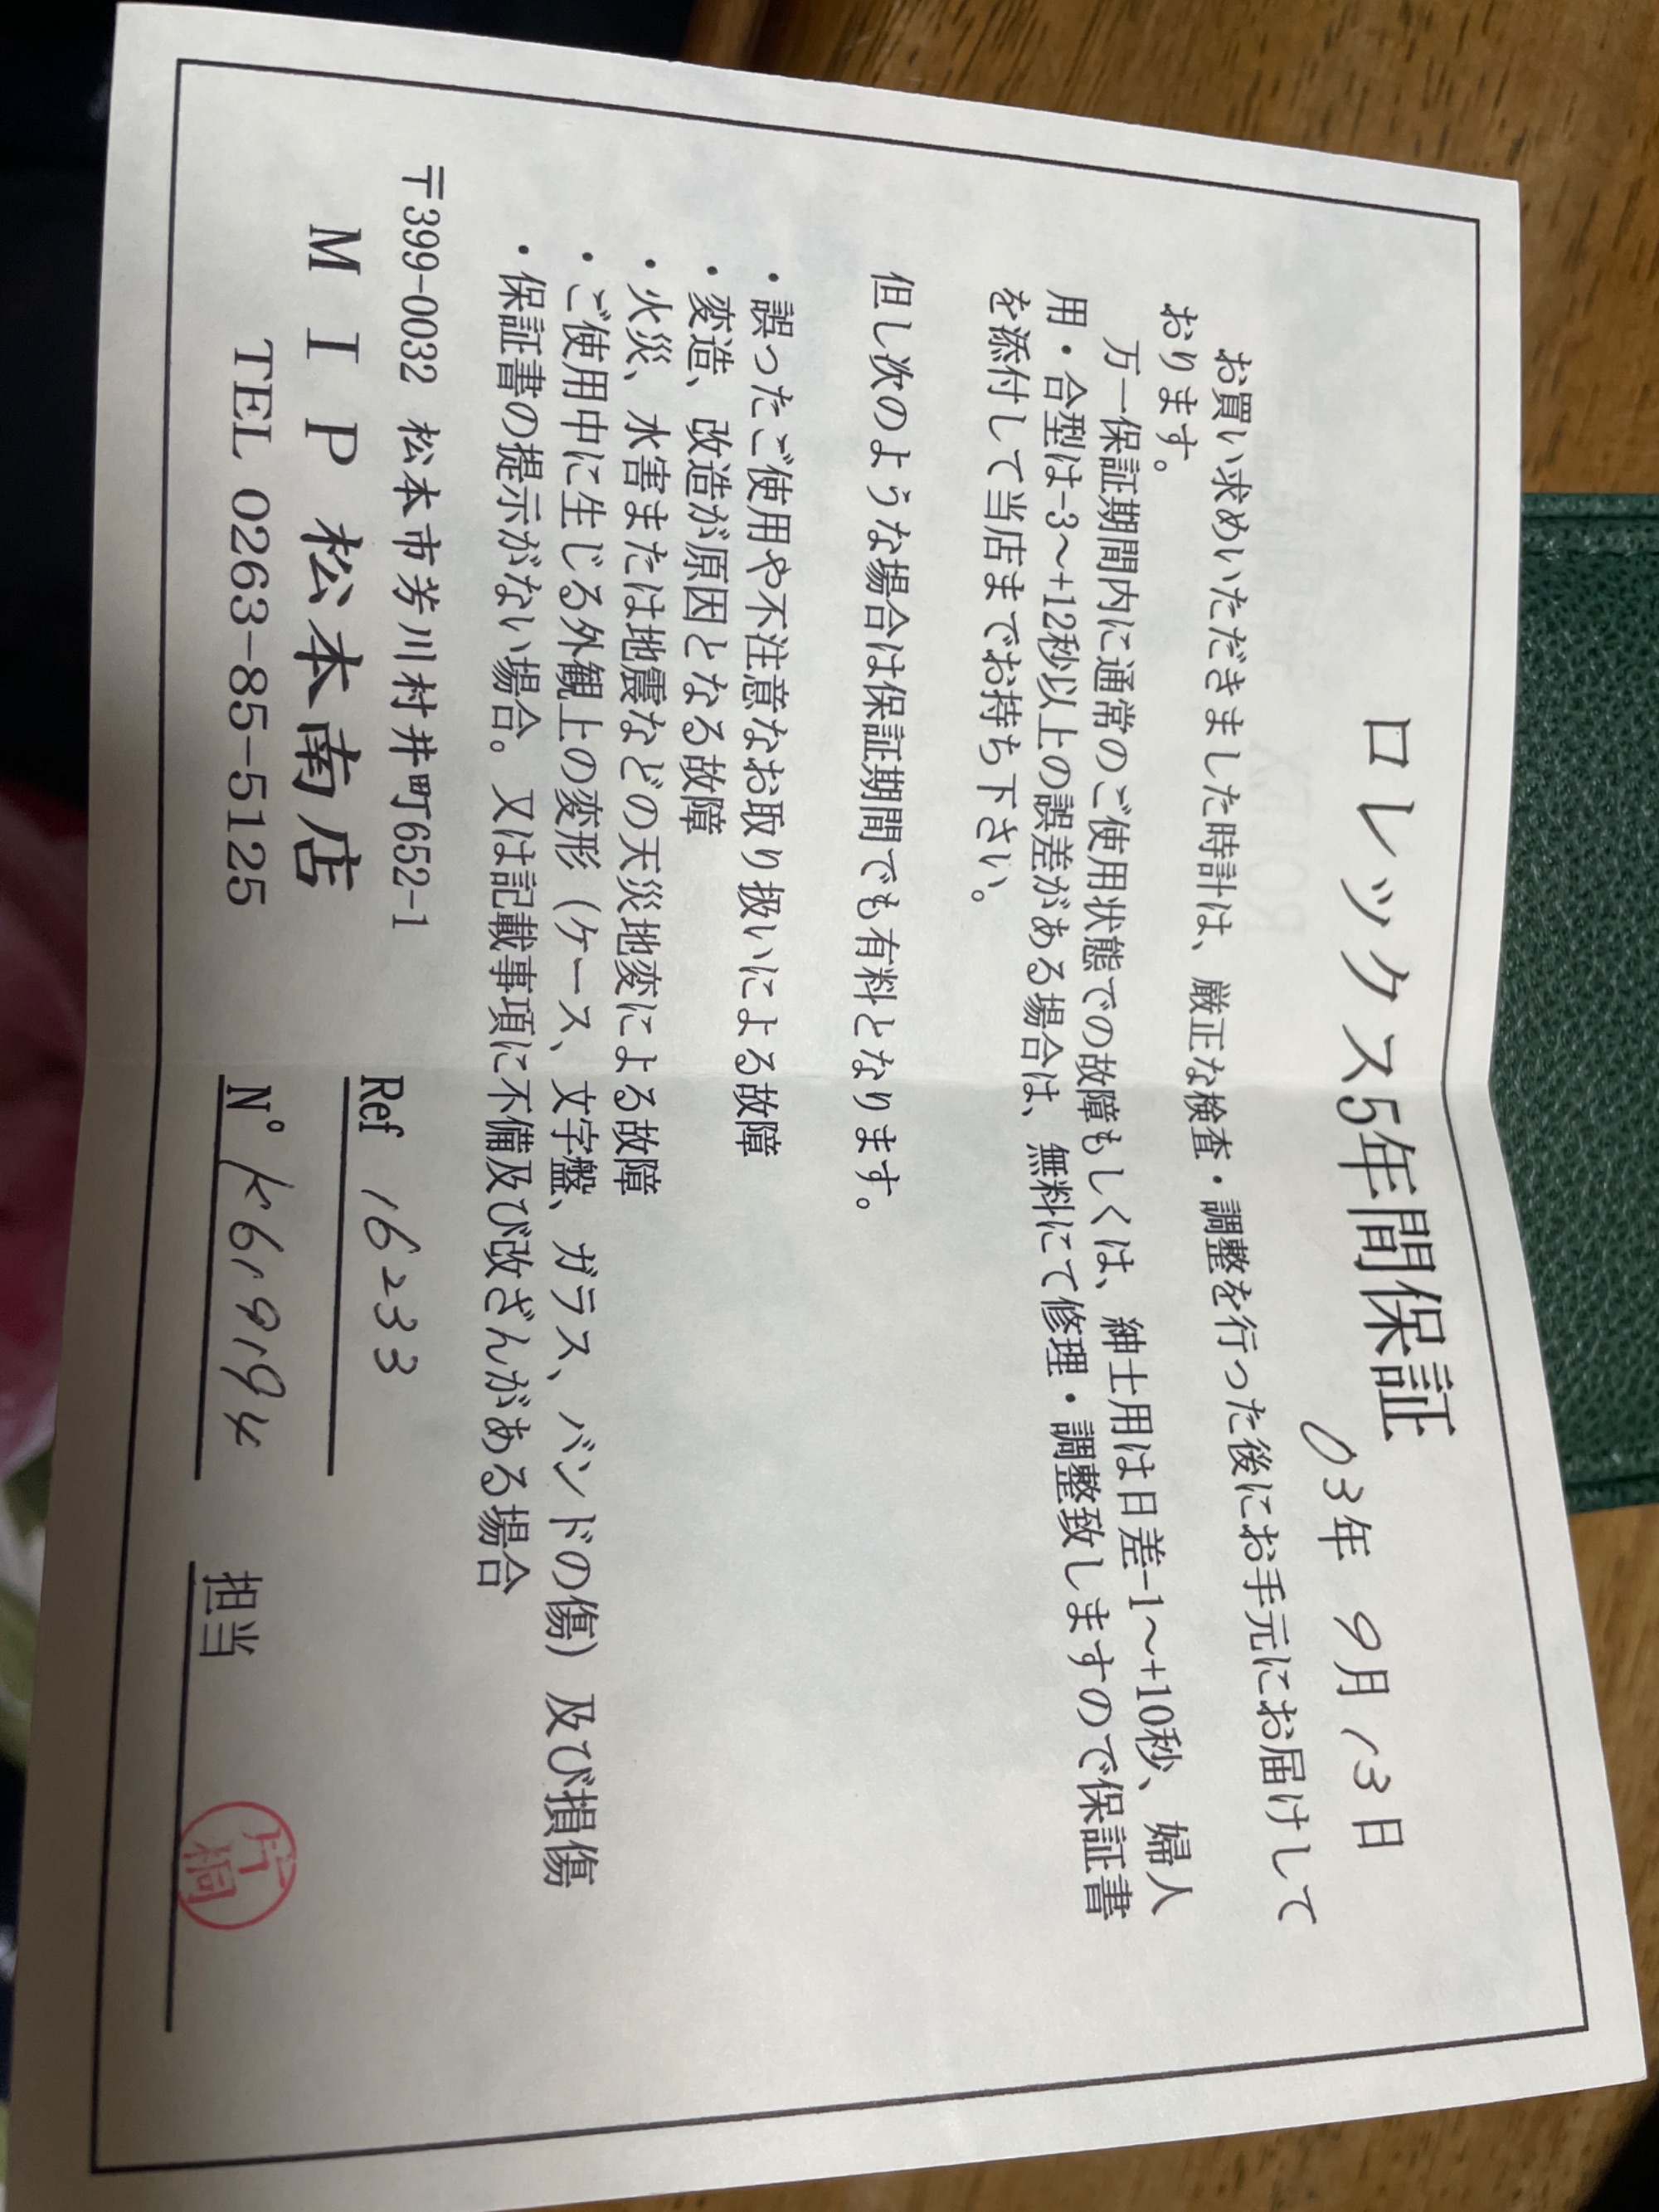 ロレックス5年間保証
03年 9月 13日
お買い求めいただきました時計は、厳正な検査・調整を行った後にお手元にお届けして
おります。
万一保証期間内に通常のご使用状態での故障もしくは、紳士用は日差-1～+10秒、婦人
用・合型は-3～+12秒以上の誤差がある場合は、無料にて修理・調整致しますので保証書
を添付して当店までお持ち下さい。
但し次のような場合は保証期間でも有料となります。
・誤ったご使用や不注意なお取り扱いによる故障
・変造、改造が原因となる故障
・火災、水害または地震などの天災地変による故障
・ご使用中に生じる外観上の変形（ケース、文字盤、ガラス、バンドの傷）及び損傷
・保証書の提示がない場合。又は記載事項に不備及び改ざんがある場合
〒399-0032 松本市芳川村井町652-1
ＭＩＰ松本南店
TEL 0263-85-5125
Ref 16233
N° K619194
担当 片桐
ROLEX